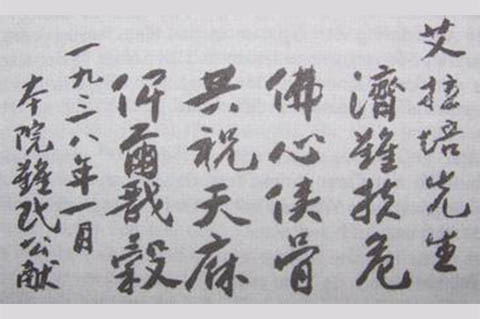 艾拉培先生
濟難扶危
佛心俠骨
共祝天庥
俾爾戩穀
一九三八年一月
本院難民公献